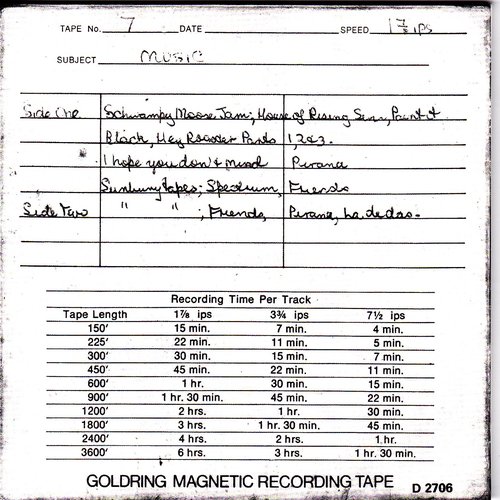 TAPE No. 7 DATE SPEED 1 7/8 IPS
SUBJECT MUSIC
Side One Schwampy Moose Jam; House of Rising Sun, Paint it
Black, Hey Roaster Parts 1, 2 & 3.
I hope you don't mind Pirana
Sunbury tapes; Spectrum, Friends
Side Two " " ; Friends, Pirana, La de das.
Recording Time Per Track
Tape Length 1⅞ ips 3¾ ips 7½ ips
150' 15 min. 7 min. 4 min.
225' 22 min. 11 min. 5 min.
300' 30 min. 15 min. 7 min.
450' 45 min. 22 min. 11 min.
600' 1 hr. 30 min. 15 min.
900' 1 hr. 30 min. 45 min. 22 min.
1200' 2 hrs. 1 hr. 30 min.
1800' 3 hrs. 1 hr. 30 min. 45 min.
2400' 4 hrs. 2 hrs. 1 hr.
3600' 6 hrs. 3 hrs. 1 hr. 30 min.
GOLDRING MAGNETIC RECORDING TAPE D 2706